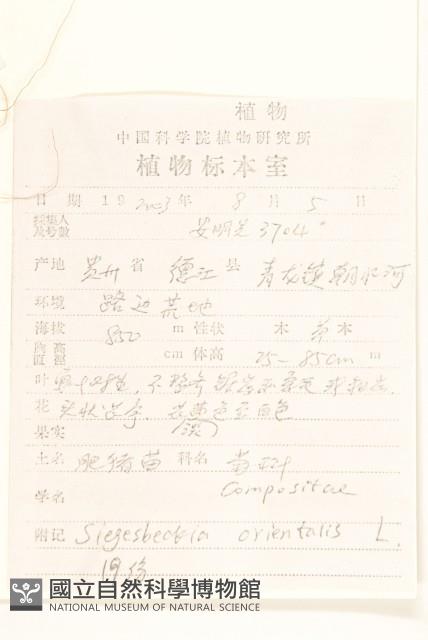 植物
中国科学院植物研究所
植物标本室
日 期 19 2003 年 8 月 5 日
采集人及号数 安明先 3704
产地 贵州 省 德江 县 青龙镇 朝水河
环境 路边荒地
海拔 850 m 性状 木 草 木
胸高直径 cm 体高 75-85cm m
叶
花 头状 白色
(淡)
果实
土名 肥猪苗 科名 菊科
Compositae
学名
附记 Siegesbeckia orientalis L.
19份
國立自然科學博物館
NATIONAL MUSEUM OF NATURAL SCIENCE